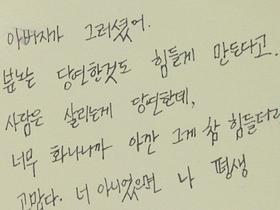 아버지가 그러셨어.
분노는 당연한것도 힘들게 만든다고.
사람은 살리는게 당연한데,
너무 화나니까 아깐 그게 참 힘들더라
고맙다. 너 아니었으면 나 평생